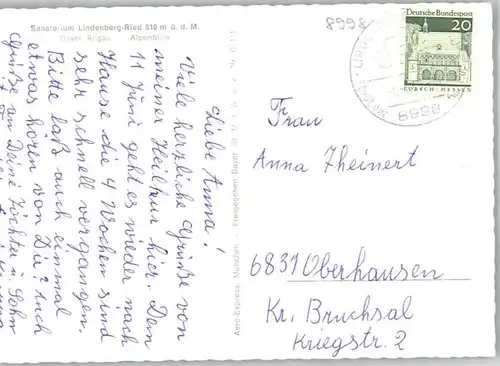 Sanatorium Lindenberg-Ried 810 m ü. d. M.
Bayer. Allgäu Alpenblick
8998
Deutsche Bundespost
20
LORSCH/HESSEN
8998
Liebe Anna!
Viele herzliche Grüße von
meiner Heilkur hier. Den
11 Juni geht es wieder nach
Hause die 4 Wochen sind
sehr schnell vergangen.
Bitte laß auch einmal
etwas hören von Dir? Auch
Grüße an Deine Tochter u. Sohn
Aero-Express München Freigegeben Bayer
Frau
Anna Theinert
6831 Oberhausen
Kr. Bruchsal
Kriegstr. 2